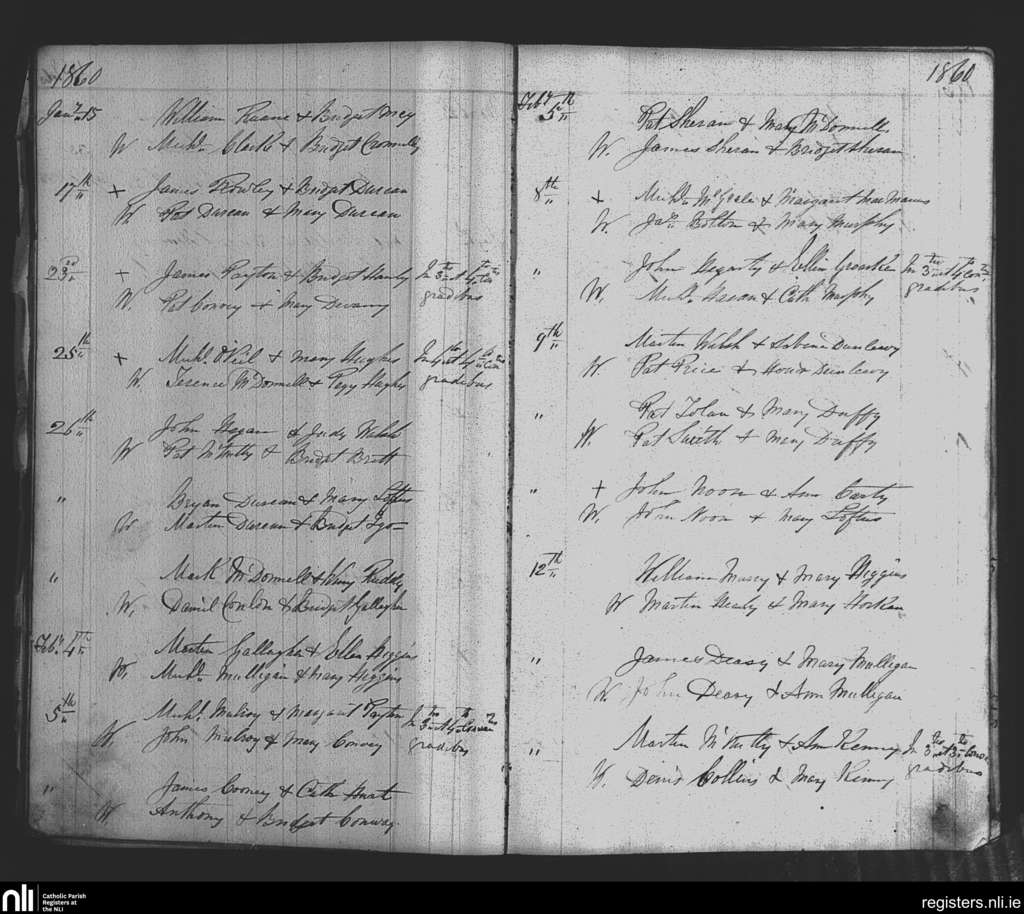 1860
Jany 15 William Ruane & Bridget
W Michl. Clarke & Bridget Connelly
17th + James Rowley & Bridget Durcan
W. Pat Durcan & Mary Durcan
23rd + James Payton & Bridget Hanly In 3tio et 4to
W. Pat Convey & Mary Devany gradibus
25th + Michl. O'Neil & Mary Hughes In 4to et 4to
W. Terence McDonnell & Pegy Hughes gradibus
26th John Hegan & Judy Walsh
W Pat McNulty & Bridget Brett
" Bryan Durcan & Mary Loftus
W. Martin Durcan & Bridget
" Mark McDonnell & Winy Ruddy
W. Daniel Conlon & Bridget Gallagher
Feby. 4th Martin Gallagher & Ellen Higgins
W. Michl. Mulligan & Mary Higgins
5th Michl. Mulroy & Margaret Payton In 3tio et 4to
W. John Mulroy & Mary Convey gradibus
" James Cooney & Cath Hunt
W Anthony & Bridget Conway
1860
Feby 5th Pat Sheran & Mary McDonnell
W. James Sheran & Bridget Sheran
8th + Michl. McGreale & Margaret
W. Jas. Bolton & Mary Murphy
" John Hegarty & Ellen In 3tio et 4to
W. Michl. & Cath Murphy gradibus
9th Martin Walsh & Sabina Dunleavy
W. Pat Price & Honor Dunleavy
" Pat Tolan & Mary Duffy
W. Pat & Mary Duffy
" + John Noon & Ann Carty
W. John Noon & Mary Loftus
12th William & Mary Higgins
W Martin Healy & Mary Horkan
" James Deasy & Mary Mulligan
W. John Deasy & Ann Mulligan
" Martin McNulty & Ann Kenny In 3tio et 3tio
W. Denis Collins & Mary Kenny gradibus
nli
Catholic Parish
Registers at
the NLI
registers.nli.ie